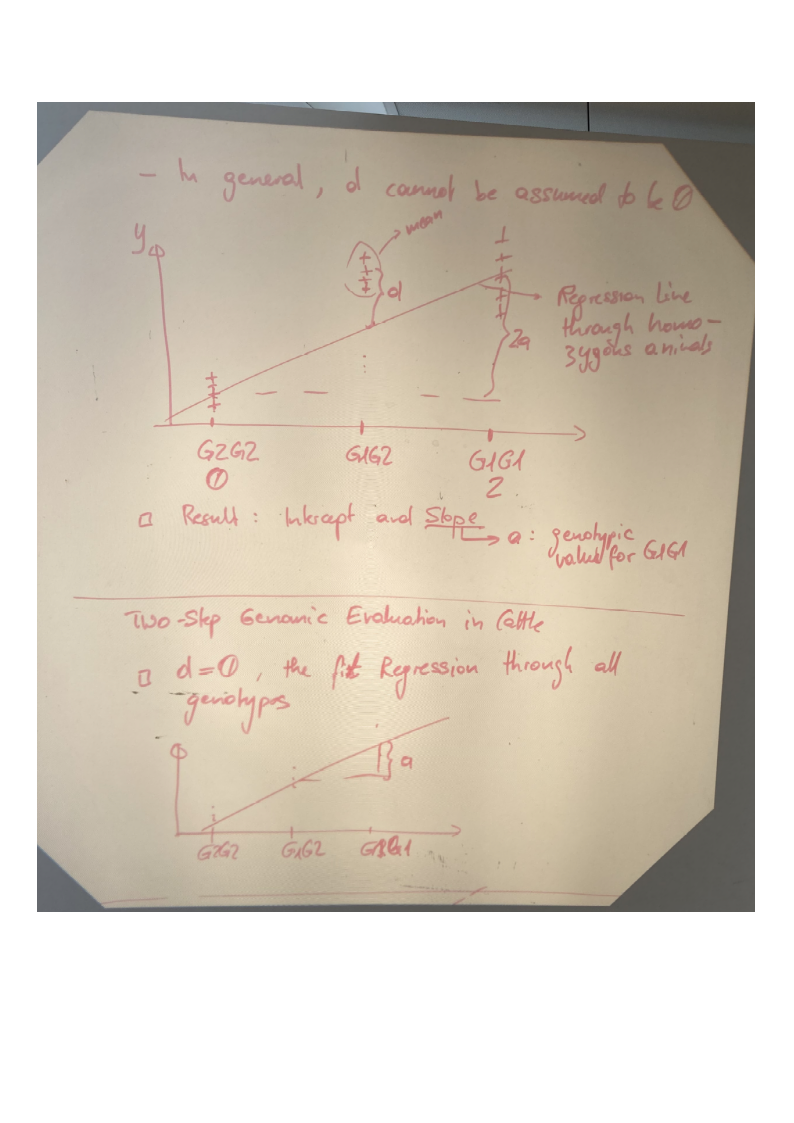 - In general, d cannot be assumed to be 0
y
mean
d
Regression Line
through homo-
zygous animals
2a
G2G2
G1G2
G1G1
0
2
Result: Intercept and Slope
a: genotypic
value for G1G1
Two-Step Genomic Evaluation in Cattle
d=0, the fit Regression through all
genotypes
a
G2G2
G1G2
G1G1